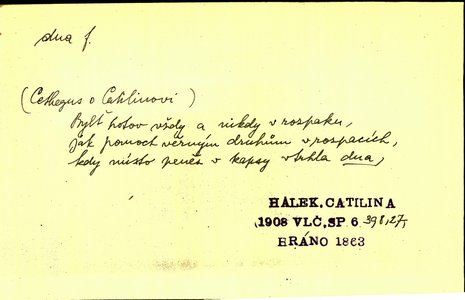 dna f.
(Cethegus o Catilinovi)
Bylť hotov vždy a nikdy v rozpaku,
jak pomoct věrným druhům v rozpacích,
kdy místo peněz v kapsy vtrhla dna,
HÁLEK, CATILINA
1908 VLČ, SP 6 398,27,
HRÁNO 1863